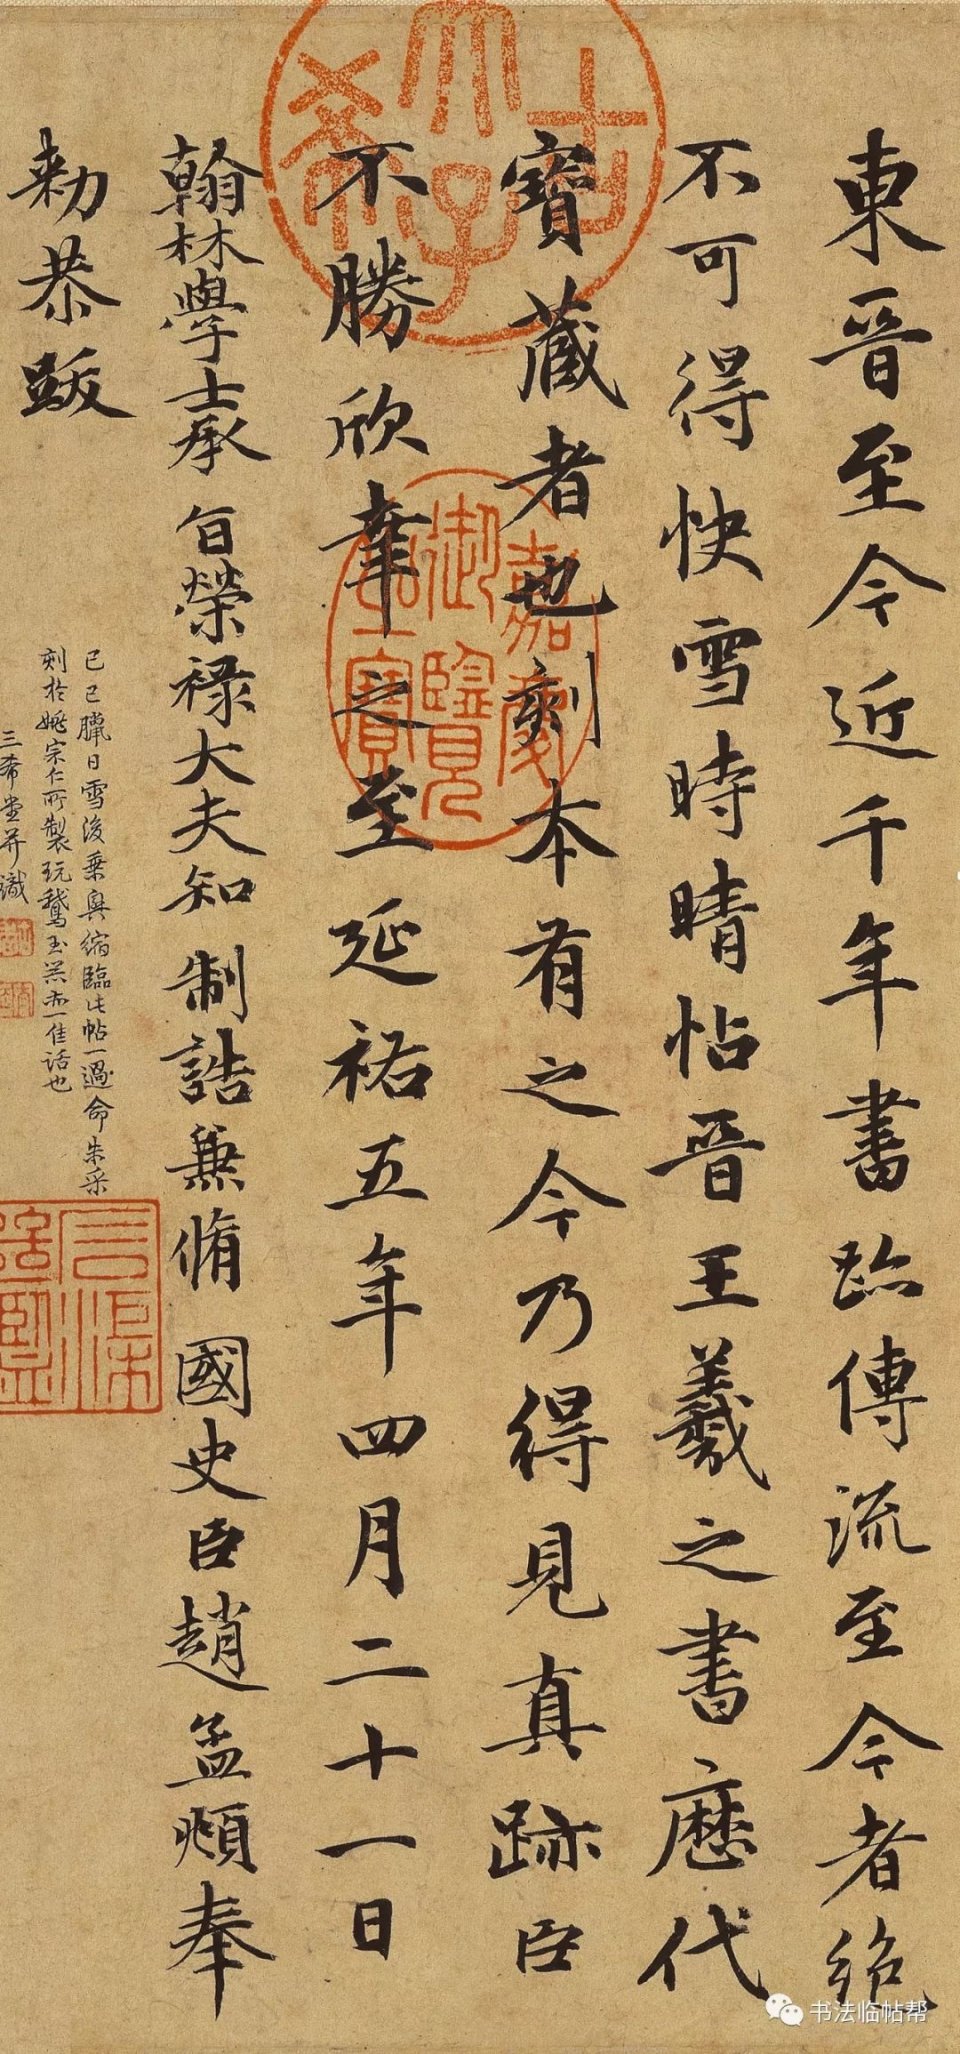 東晉至今近千年書跡傳流至今者絕
不可得快雪時晴帖晉王羲之書歷代
寶藏者也刻本有之今乃得見真跡臣
不勝欣幸之至延祐五年四月二十一日
翰林學士承旨榮祿大夫知制誥兼脩國史臣趙孟頫奉
勑恭跋
己巳臘日雪後乗興縮臨此帖一過命朱采
刻於姚宗仁所製玩鵞玉器亦一佳話也
三希堂并識
古希天子
嘉慶御覽之寶
書法临帖帮